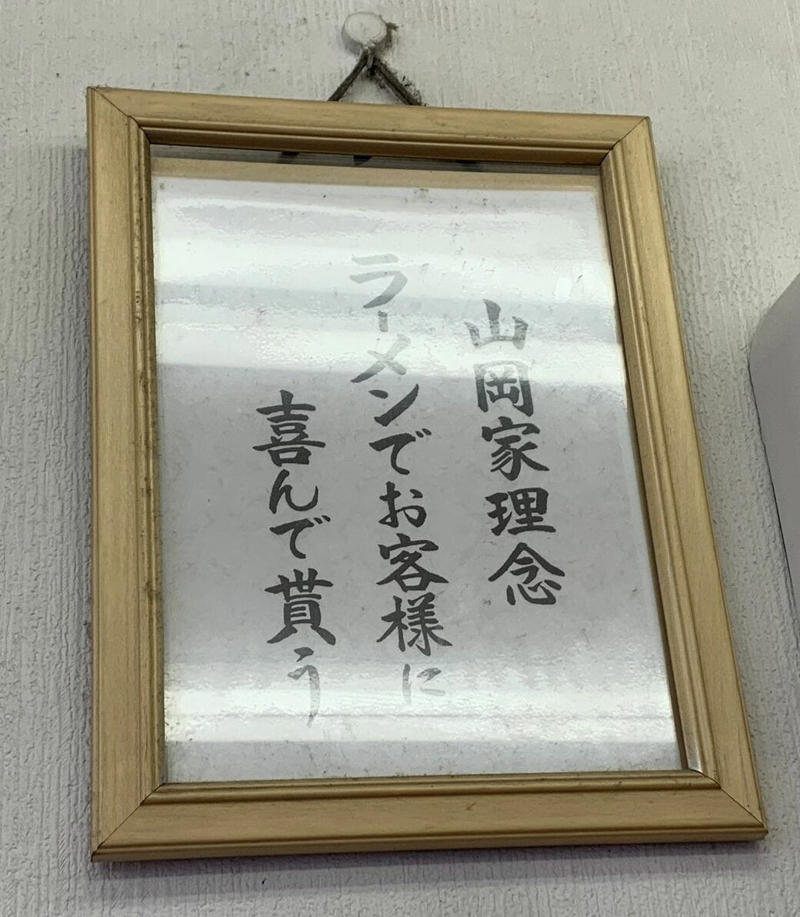 山岡家理念
ラーメンでお客様に
喜んで貰う